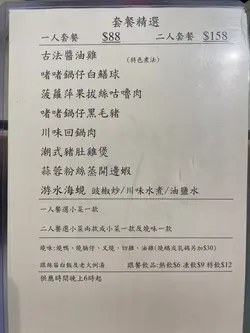 套餐精選
一人套餐 $88 二人套餐 $158
古法醬油雞 (特色煮法)
啫啫鍋仔白鱔球
菠蘿萍果拔絲咕嚕肉
啫啫鍋仔黑毛豬
川味回鍋肉
潮式豬肚雞煲
蒜蓉粉絲蒸開邊蝦
游水海蜆 豉椒炒/川味水煮/油鹽水
一人餐選小菜一款
二人餐選小菜兩款或小菜一款及燒味一款
燒味:燒鴨、燒腩仔、叉燒、切雞、油雞(燒鵝及乳鴿另加$30)
跟絲苗白飯及老火例湯 跟餐飲品:熱飲$6 凍飲$9 特飲$12
供應時間晚上6時起